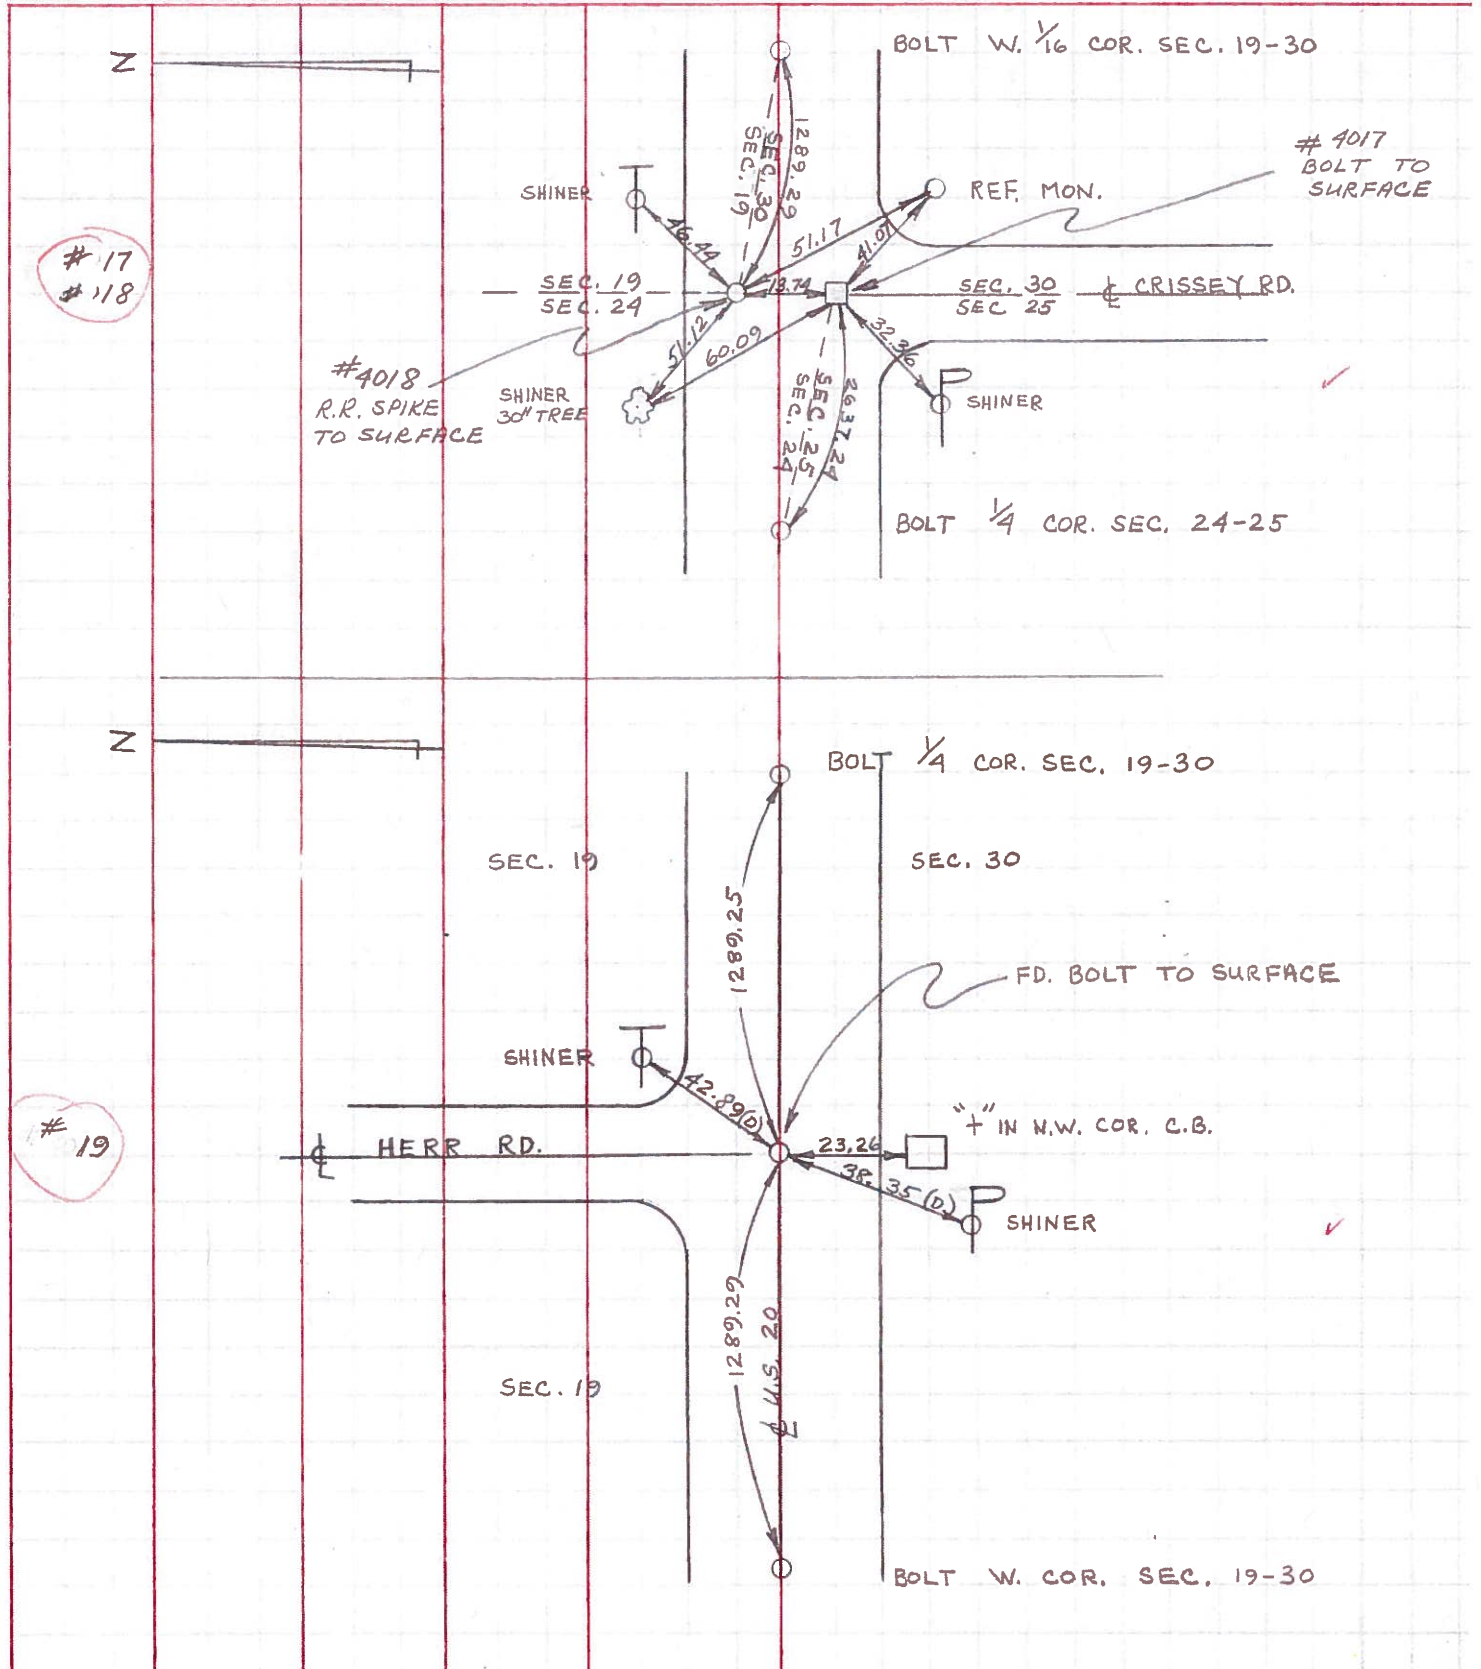 BOLT W. 1/16 COR. SEC. 19-30
N
# 4017
BOLT TO
SURFACE
1289.29
SEC. 30
SEC. 19
SHINER
REF. MON.
46.44
51.17
41.07
# 17
# 18
SEC. 19
SEC. 24
13.74
SEC. 30
SEC 25
℄ CRISSEY RD.
51.12
60.09
32.36
#4018
R.R. SPIKE
TO SURFACE
SHINER
30" TREE
SEC. 25
SEC. 24
2637.24
SHINER
BOLT 1/4 COR. SEC. 24-25
N
BOLT 1/4 COR. SEC. 19-30
SEC. 19
SEC. 30
1289.25
FD. BOLT TO SURFACE
SHINER
42.89(D)
# 19
℄ HERR RD.
23.26
"+" IN N.W. COR. C.B.
38.35(D)
SHINER
1289.29
℄ U.S. 20
SEC. 19
BOLT W. COR. SEC. 19-30